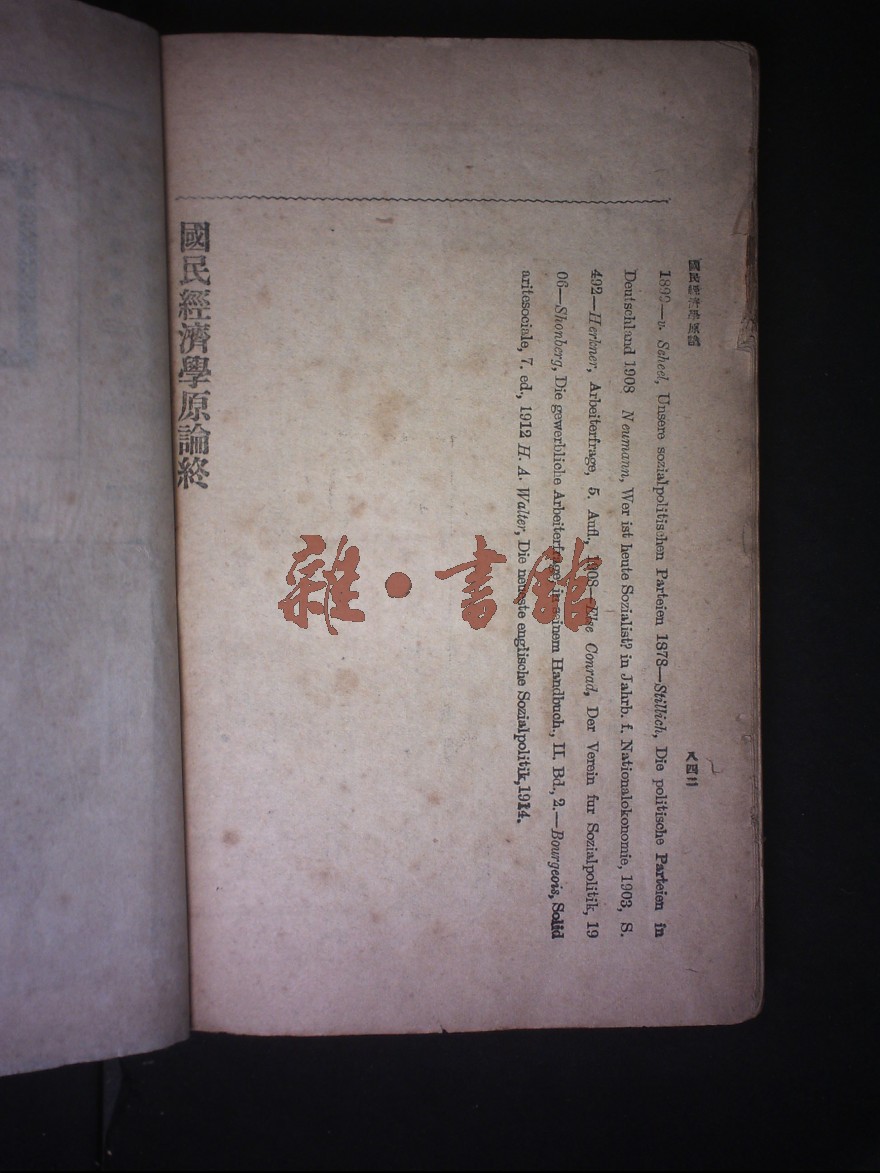 國民經濟學原論
八四二
1899—v. Scheel, Unsere sozialpolitischen Parteien 1878—Stillich, Die politische Parteien in
Deutschland 1908 Neumann, Wer ist heute Sozialist? in Jahrb. f. Nationalokonomie, 1903, S.
492—Herkner, Arbeiterfrage, 5. Aufl, 1908—Else Conrad, Der Verein fur Sozialpolitik, 19
06—Shonberg, Die gewerbliche Arbeiterfrage, in seinem Handbuch., II. Bd., 2.—Bourgeois, Solid
aritesociale, 7. ed., 1912 H. A. Walter, Die neueste englische Sozialpolitik, 1914.
國民經濟學原論終
雜·書館